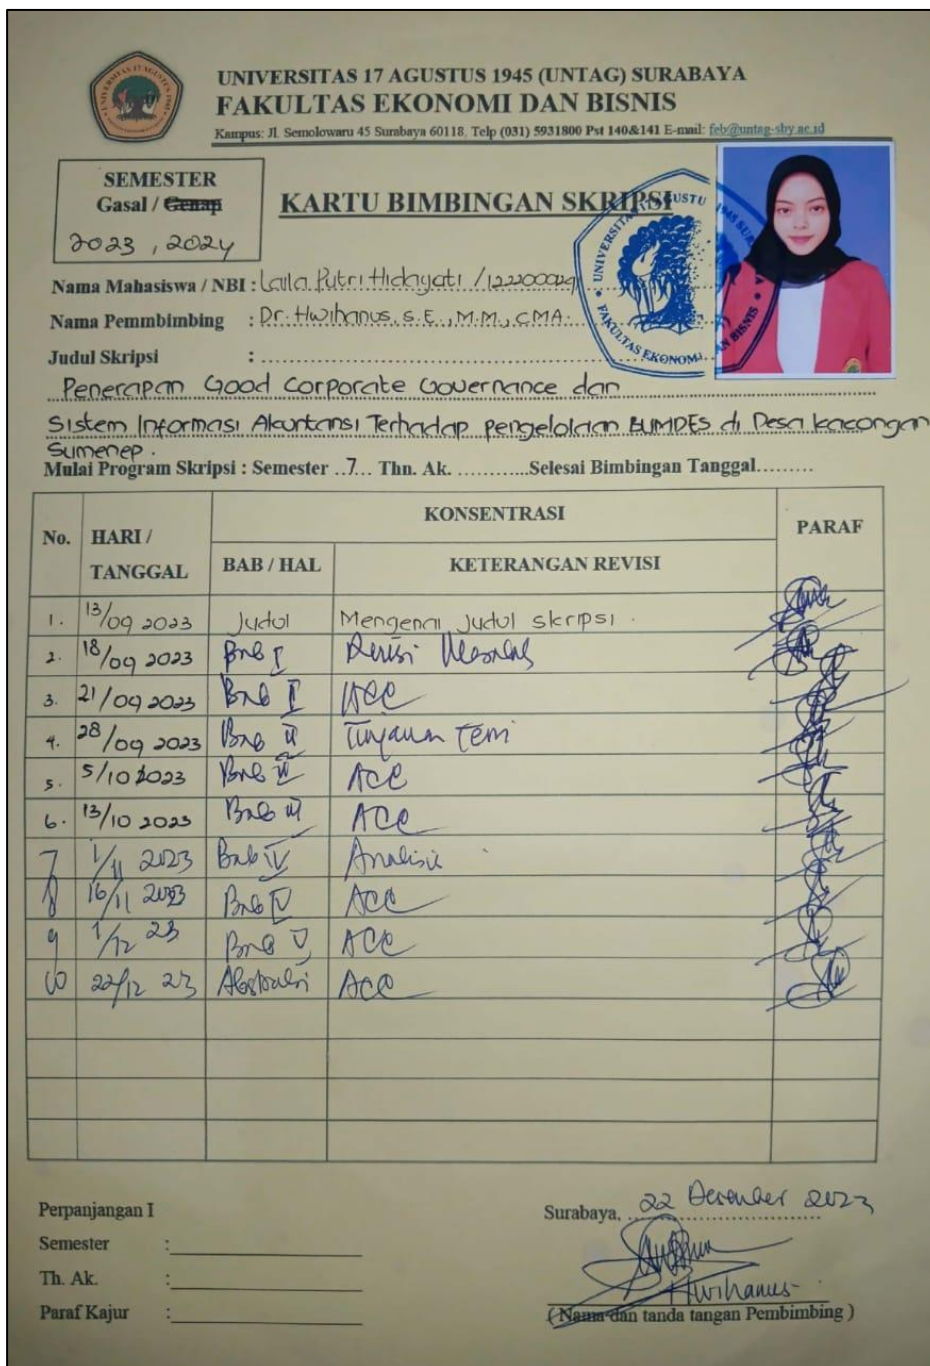 UNIVERSITAS 17 AGUSTUS 1945 (UNTAG) SURABAYA
FAKULTAS EKONOMI DAN BISNIS
Kampus: Jl. Semolowaru 45 Surabaya 60118, Telp (031) 5931800 Pst 140&141 E-mail: feb@untag-sby.ac.id
SEMESTER
Gasal / Genap
2023, 2024
KARTU BIMBINGAN SKRIPSI
Nama Mahasiswa / NBI : Laila Putri Hidayati /
Nama Pemmbimbing : Dr. Hwihanus, S.E., M.M., CMA.
Judul Skripsi :
Penerapan Good Corporate Governance dan
Sistem Informasi Akuntansi Terhadap pengelolaan BUMDES di Desa kacongan
Sumenep.
Mulai Program Skripsi : Semester ..7... Thn. Ak. ............Selesai Bimbingan Tanggal.........
No. HARI / TANGGAL KONSENTRASI PARAF
BAB / HAL KETERANGAN REVISI
1. 13/09 2023 Judul Mengenai judul skripsi.
2. 18/09 2023 Bab I Revisi
3. 21/09 2023 Bab I ACC
4. 28/09 2023 Bab II Tinjauan
5. 5/10 2023 Bab ACC
6. 13/10 2023 Bab III ACC
7 1/11 2023 Bab IV Analisis
8 16/11 2023 Bab IV ACC
9 1/12 23 Bab V ACC
10 22/12 23 ACC
Perpanjangan I
Semester :
Th. Ak. :
Paraf Kajur :
Surabaya, 22 Desember 2023
Hwihanus
( Nama dan tanda tangan Pembimbing )